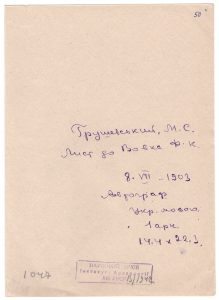 50
Грушевський, М. С.
Лист до Вовка Ф. К.
8. VII - 1903
Автограф
Укр. мовою
1 арк.
14.4 х 22.3.
1047